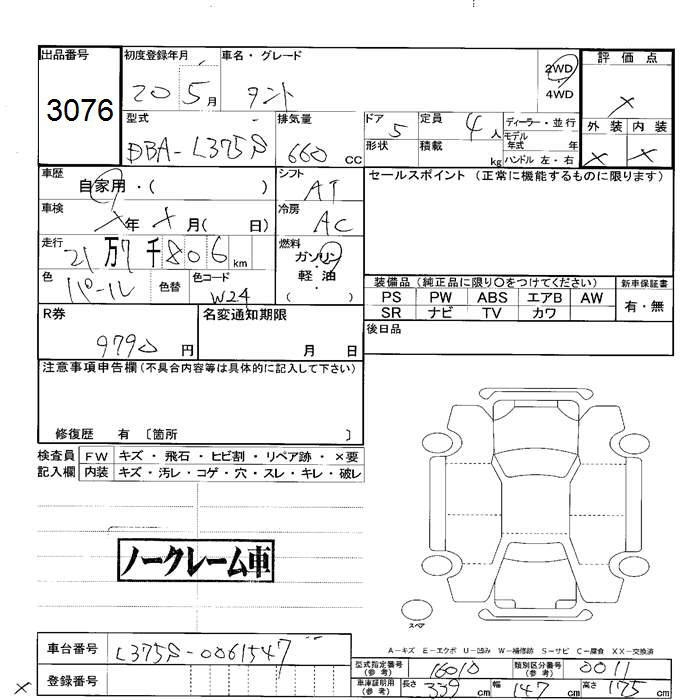 出品番号
3076
初度登録年月
20 5月
車名・グレード
タント
2WD
4WD
評価点
×
外装 内装
× ×
型式
DBA-L375S
排気量
660 CC
ドア 5
形状
定員 4人
積載 kg
ディーラー・並行
モデル年式 年
ハンドル 左・右
車歴
自家用・( )
シフト AT
車検
×年 ×月( 日)
冷房 AC
走行
21万7千806km
燃料
ガソリン
軽油
( )
色 パール
色替
色コード W24
R券
9790円
名変通知期限
月 日
セールスポイント (正常に機能するものに限ります)
装備品 (純正品に限り○をつけてください)
PS PW ABS エアB AW
SR ナビ TV カワ
新車保証書
有・無
後日品
注意事項申告欄(不具合内容等は具体的に記入して下さい)
修復歴 有 〔箇所 〕
検査員記入欄
FW キズ・飛石・ヒビ割・リペア跡・×要
内装 キズ・汚レ・コゲ・穴・スレ・キレ・破レ
ノークレーム車
スペア
A-キズ E-エクボ U-凹み W-補修跡 S-サビ C-腐食 XX-交換済
車台番号 L375S-0061547
登録番号
×
型式指定番号(参考) 16010
類別区分番号(参考) 0011
車庫証明用(参考) 長さ 339cm 幅 147cm 高さ 175cm